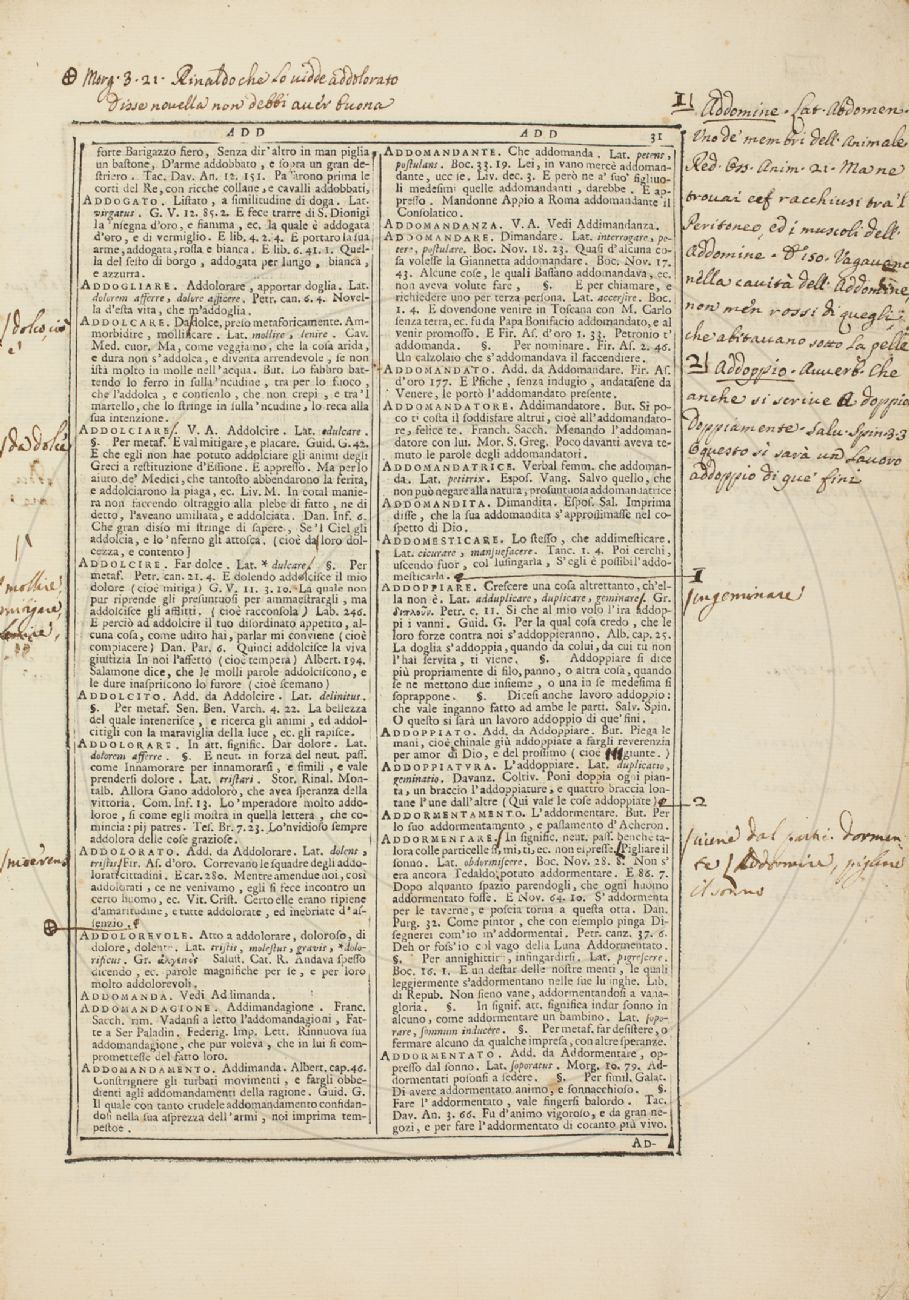 ⊕ Morg. 3. 21. Rinaldo che lo vidde addolorato
Disse novella non debbi aver buona
A D D
forte Barigazzo fiero, Senza dir'altro in man piglia
un bastone, D'arme addobbato, e sopra un gran de-
striero. Tac. Dav. An. 12. 151. Passarono prima le
corti del Re, con ricche collane, e cavalli addobbati,
ADDOGATO. Listato, a similitudine di doga. Lat.
virgatus. G. V. 12. 85. 2. E fece trarre di S. Dionigi
la 'nsegna d'oro, e fiamma, ec. la quale è addogata
d'oro, e di vermiglio. E lib. 4. 2. 4. E portaro la sua
arme, addogata, rossa e bianca. E lib. 6. 41. 1. Quel-
la del sesto di borgo, addogata per lungo, bianca,
e azzurra.
ADDOGLIARE. Addolorare, apportar doglia. Lat.
dolorem afferre, dolore afficere. Petr. can. 6. 4. Novel-
la d'esta vita, che m'addoglia.
ADDOLCARE. Da dolce, preso metaforicamente. Am-
morbidire, mollificare. Lat. mollire, lenire. Cav.
Med. cuor. Ma, come veggiamo, che la cosa arida,
e dura non s'addolca, e diventa arrendevole, se non
istà molto in molle nell'acqua. But. Lo fabbro bat-
tendo lo ferro in sulla 'ncudine, tra per lo fuoco,
che l'addolca, e contienlo, che non crepi, e tra'l
martello, che lo stringe in sulla 'ncudine, lo reca alla
sua intenzione.
ADDOLCIARE. V. A. Addolcire. Lat. edulcare.
§. Per metaf. E val mitigare, e placare. Guid. G. 42.
E che egli non hae potuto addolciare gli animi degli
Greci a restituzione d'Essione. E appresso. Ma per lo
aiuto de' Medici, che tantosto abbendarono la ferita,
e addolciarono la piaga, ec. Liv. M. In cotal manie-
ra non facendo oltraggio alla plebe di fatto, ne di
detto, l'aveano umiliata, e addolciata. Dan. Inf. 6.
Che gran disio mi stringe di sapere, Se 'l Ciel gli
addolcia, e lo 'nferno gli attosca. (cioè dà loro dol-
cezza, e contento]
ADDOLCIRE. Far dolce. Lat. * dulcare. §. Per
metaf. Petr. can. 21. 4. E dolendo addolcisce il mio
dolore (cioè mitiga) G. V. 11. 3. 10. La quale non
pur riprende gli presuntuosi per ammaestrargli, ma
addolcisce gli afflitti. (cioè racconsola) Lab. 246.
E perciò ad addolcire il tuo disordinato appetito, al-
cuna cosa, come udito hai, parlar mi conviene (cioè
compiacere) Dan. Par. 6. Quinci addolcisce la viva
giustizia In noi l'affetto (cioè tempera) Albert. 194.
Salamone dice, che le molli parole addolciscono, e
le dure inaspriscono lo furore (cioè scemano)
ADDOLCITO. Add. da Addolcire. Lat. delinitus.
§. Per metaf. Sen. Ben. Varch. 4. 22. La bellezza
del quale intenerisce, e ricerca gli animi, ed addol-
citigli con la maraviglia della luce, ec. gli rapisce.
ADDOLORARE. In att. signific. Dar dolore. Lat.
dolorem afferre. §. E neut. in forza del neut. pass.
come Innamorare per innamorarsi, e simili, e vale
prendersi dolore. Lat. tristari. Stor. Rinal. Mon-
talb. Allora Gano addolorò, che avea speranza della
vittoria. Com. Inf. 13. Lo 'mperadore molto addo-
loroe, sì come egli mostra in quella lettera, che co-
mincia: pij patres. Tes. Br. 7. 23. Lo'nvidioso sempre
addolora delle cose graziose.
ADDOLORATO. Add. da Addolorare. Lat. dolens,
tristis Fir. As. d'oro. Correvano le squadre degli addo-
lorati cittadini. E car. 280. Mentre amendue noi, così
addolorati, ce ne venivamo, egli si fece incontro un
certo huomo, ec. Vit. Crist. Certo elle erano ripiene
d'amaritudine, e tutte addolorate, ed inebriate d'as-
senzio.
ADDOLOREVOLE. Atto a addolorare, doloroso, di
dolore, dolente. Lat. tristis, molestus, gravis, *dolo-
rificus. Gr. Salust. Cat. R. Andava spesso
dicendo, ec. parole magnifiche per se, e per loro
molto addolorevoli.
ADDOMANDA. Vedi Addimanda.
ADDOMANDAGIONE. Addimandagione. Franc.
Sacch. rim. Vadansi a letto l'addomandagioni, Fat-
te a Ser Paladin. Federig. Imp. Lett. Rinnuova sua
addomandagione, che pur voleva, che in lui si com-
promettesse del fatto loro.
ADDOMANDAMENTO. Addimanda. Albert. cap. 46.
Constrignere gli turbati movimenti, e fargli obbe-
dienti agli addomandamenti della ragione. Guid. G.
Il quale con tanto crudele addomandamento confidan-
dosi nella sua asprezza dell'armi, noi imprima tem-
pestoe.
A D D 31
ADDOMANDANTE. Che addomanda. Lat. petens,
postulans. Boc. 33. 19. Lei, in vano mercè addoman-
dante, uccise. Liv. dec. 3. E però ne a' suo' figliuo-
li medesimi quelle addomandanti, darebbe. E ap-
presso. Mandonne Appio a Roma addomandante il
Consolatico.
ADDOMANDANZA. V. A. Vedi Addimandanza.
ADDOMANDARE. Dimandare. Lat. interrogare, pe-
tere, postulare. Boc. Nov. 18. 23. Quasi d'alcuna co-
sa volesse la Giannetta addomandare. Boc. Nov. 17.
43. Alcune cose, le quali Bassano addomandava, ec.
non aveva volute fare, §. E per chiamare, e
richiedere uno per terza persona. Lat. accersire. Boc.
1. 4. E dovendone venire in Toscana con M. Carlo
senza terra, ec. fu da Papa Bonifacio addomandato, e al
venir promosso. E Fir. As. d'oro 1. 33. Petronio t'
addomanda. §. Per nominare. Fir. As. 2. 46.
Un calzolaio che s'addomandava il faccendiere.
ADDOMANDATO. Add. da Addomandare. Fir. As.
d'oro 177. E Psiche, senza indugio, andatasene da
Venere, le portò l'addomandato presente.
ADDOMANDATORE. Addimandatore. But. Si po-
co ti costa il soddisfare altrui, cioè all'addomandato-
re, felice te. Franch. Sacch. Menando l'addoman-
datore con lui. Mor. S. Greg. Poco davanti aveva te-
muto le parole degli addomandatori.
ADDOMANDATRICE. Verbal femm. che addoman-
da. Lat. petitrix. Espos. Vang. Salvo quello, che
non può negare alla natura, prosuntuosa addomandatrice
ADDOMANDITA. Dimandita. Espos. Sal. Imprima
disse, che la sua addomandita s'approssimasse nel co-
spetto di Dio.
ADDOMESTICARE. Lo stesso, che addimesticare.
Lat. cicurare, mansuefacere. Tanc. 1. 4. Poi cerchi,
uscendo fuor, col lusingarla, S'egli è possibil'addo-
mesticarla.
ADDOPPIARE. Crescere una cosa altrettanto, ch'el-
la non è. Lat. adduplicare, duplicare, geminare Gr.
διπλοῦν. Petr. c. 11. Sì che al mio volo l'ira addop-
pi i vanni. Guid. G. Per la qual cosa credo, che le
loro forze contra noi s'addoppieranno. Alb. cap. 25.
La doglia s'addoppia, quando da colui, da cui tu non
l'hai servita, ti viene. §. Addoppiare si dice
più propriamente di filo, panno, o altra cosa, quando
se ne mettono due insieme, o una in se medesima si
soprappone. §. Dicesi anche lavoro addoppio:
che vale inganno fatto ad ambe le parti. Salv. Spin.
O questo sì sarà un lavoro addoppio di que' fini.
ADDOPPIATO. Add. da Addoppiare. But. Piega le
mani, cioè chinale giù addoppiate a fargli reverenzia
per amor di Dio, e del prossimo (cioè giunte.)
ADDOPPIATURA. L'addoppiare. Lat. duplicatio,
geminatio. Davanz. Coltiv. Poni doppia ogni pian-
ta, un braccio l'addoppiature, e quattro braccia lon-
tane l'une dall'altre (Qui vale le cose addoppiate)
ADDORMENTAMENTO. L'addormentare. But. Per
lo suo addormentamento, e passamento d'Acheron.
ADDORMENTARE. In signific. neut. pass. benche ta-
lora colle particelle si, mi, ti, ec. non espresse. Pigliare il
sonno. Lat. obdormiscere. Boc. Nov. 28. 8. Non s'
era ancora Tedaldo potuto addormentare. E 86. 7.
Dopo alquanto spazio parendogli, che ogni huomo
addormentato fosse. E Nov. 64. 10. S'addormenta
per le taverne, e poscia torna a questa otta. Dan.
Purg. 32. Come pintor, che con esemplo pinga Di-
segnerei com'io m'addormentai. Petr. canz. 37. 6.
Deh or foss'io col vago della Luna Addormentato.
§. Per annighittirsi, infingardirsi. Lat. pigrescere.
Boc. 16. 1. E un destar delle nostre menti, le quali
leggiermente s'addormentano nelle sue lusinghe. Lib.
di Repub. Non sieno vane, addormentandosi a vana-
gloria. §. In signif. att. significa indur sonno in
alcuno, come addormentare un bambino. Lat. sopo-
rare, somnum inducere. §. Per metaf. far desistere, o
fermare alcuno da qualche impresa, con altre speranze.
ADDORMENTATO. Add. da Addormentare, op-
presso dal sonno. Lat. soporatus. Morg. 10. 79. Ad-
dormentati posonsi a sedere. §. Per simil. Galat.
Di avere addormentato animo, e sonnacchioso. §.
Fare l'addormentato, vale fingersi balordo. Tac.
Dav. An. 3. 66. Fu d'animo vigoroso, e da gran ne-
gozi, e per fare l'addormentato di cotanto più vivo.
AD-
1| Addomine. Lat. Abdomen.
Uno de' membri dell'Animale
Red. Oss. Anim. 21. Ma ne
trovai racchiusi tra 'l
Peritoneo, ed i muscoli dell'
Addomine. D'iso. Vagavano
nella cavità dell'Addomine,
non men rossi di quegli,
che abitavano sotto la pelle
2| Addoppio. Avverb. Che
anche si scrive A doppio
Doppiamente. Salv. Spin. 3. 3
O questo sì sarà un lavoro
addoppio di que' fini
1
ingeminare
2
viene dal
Addormire, pigliare
il sonno
mollire,
mitigare,
lenire,